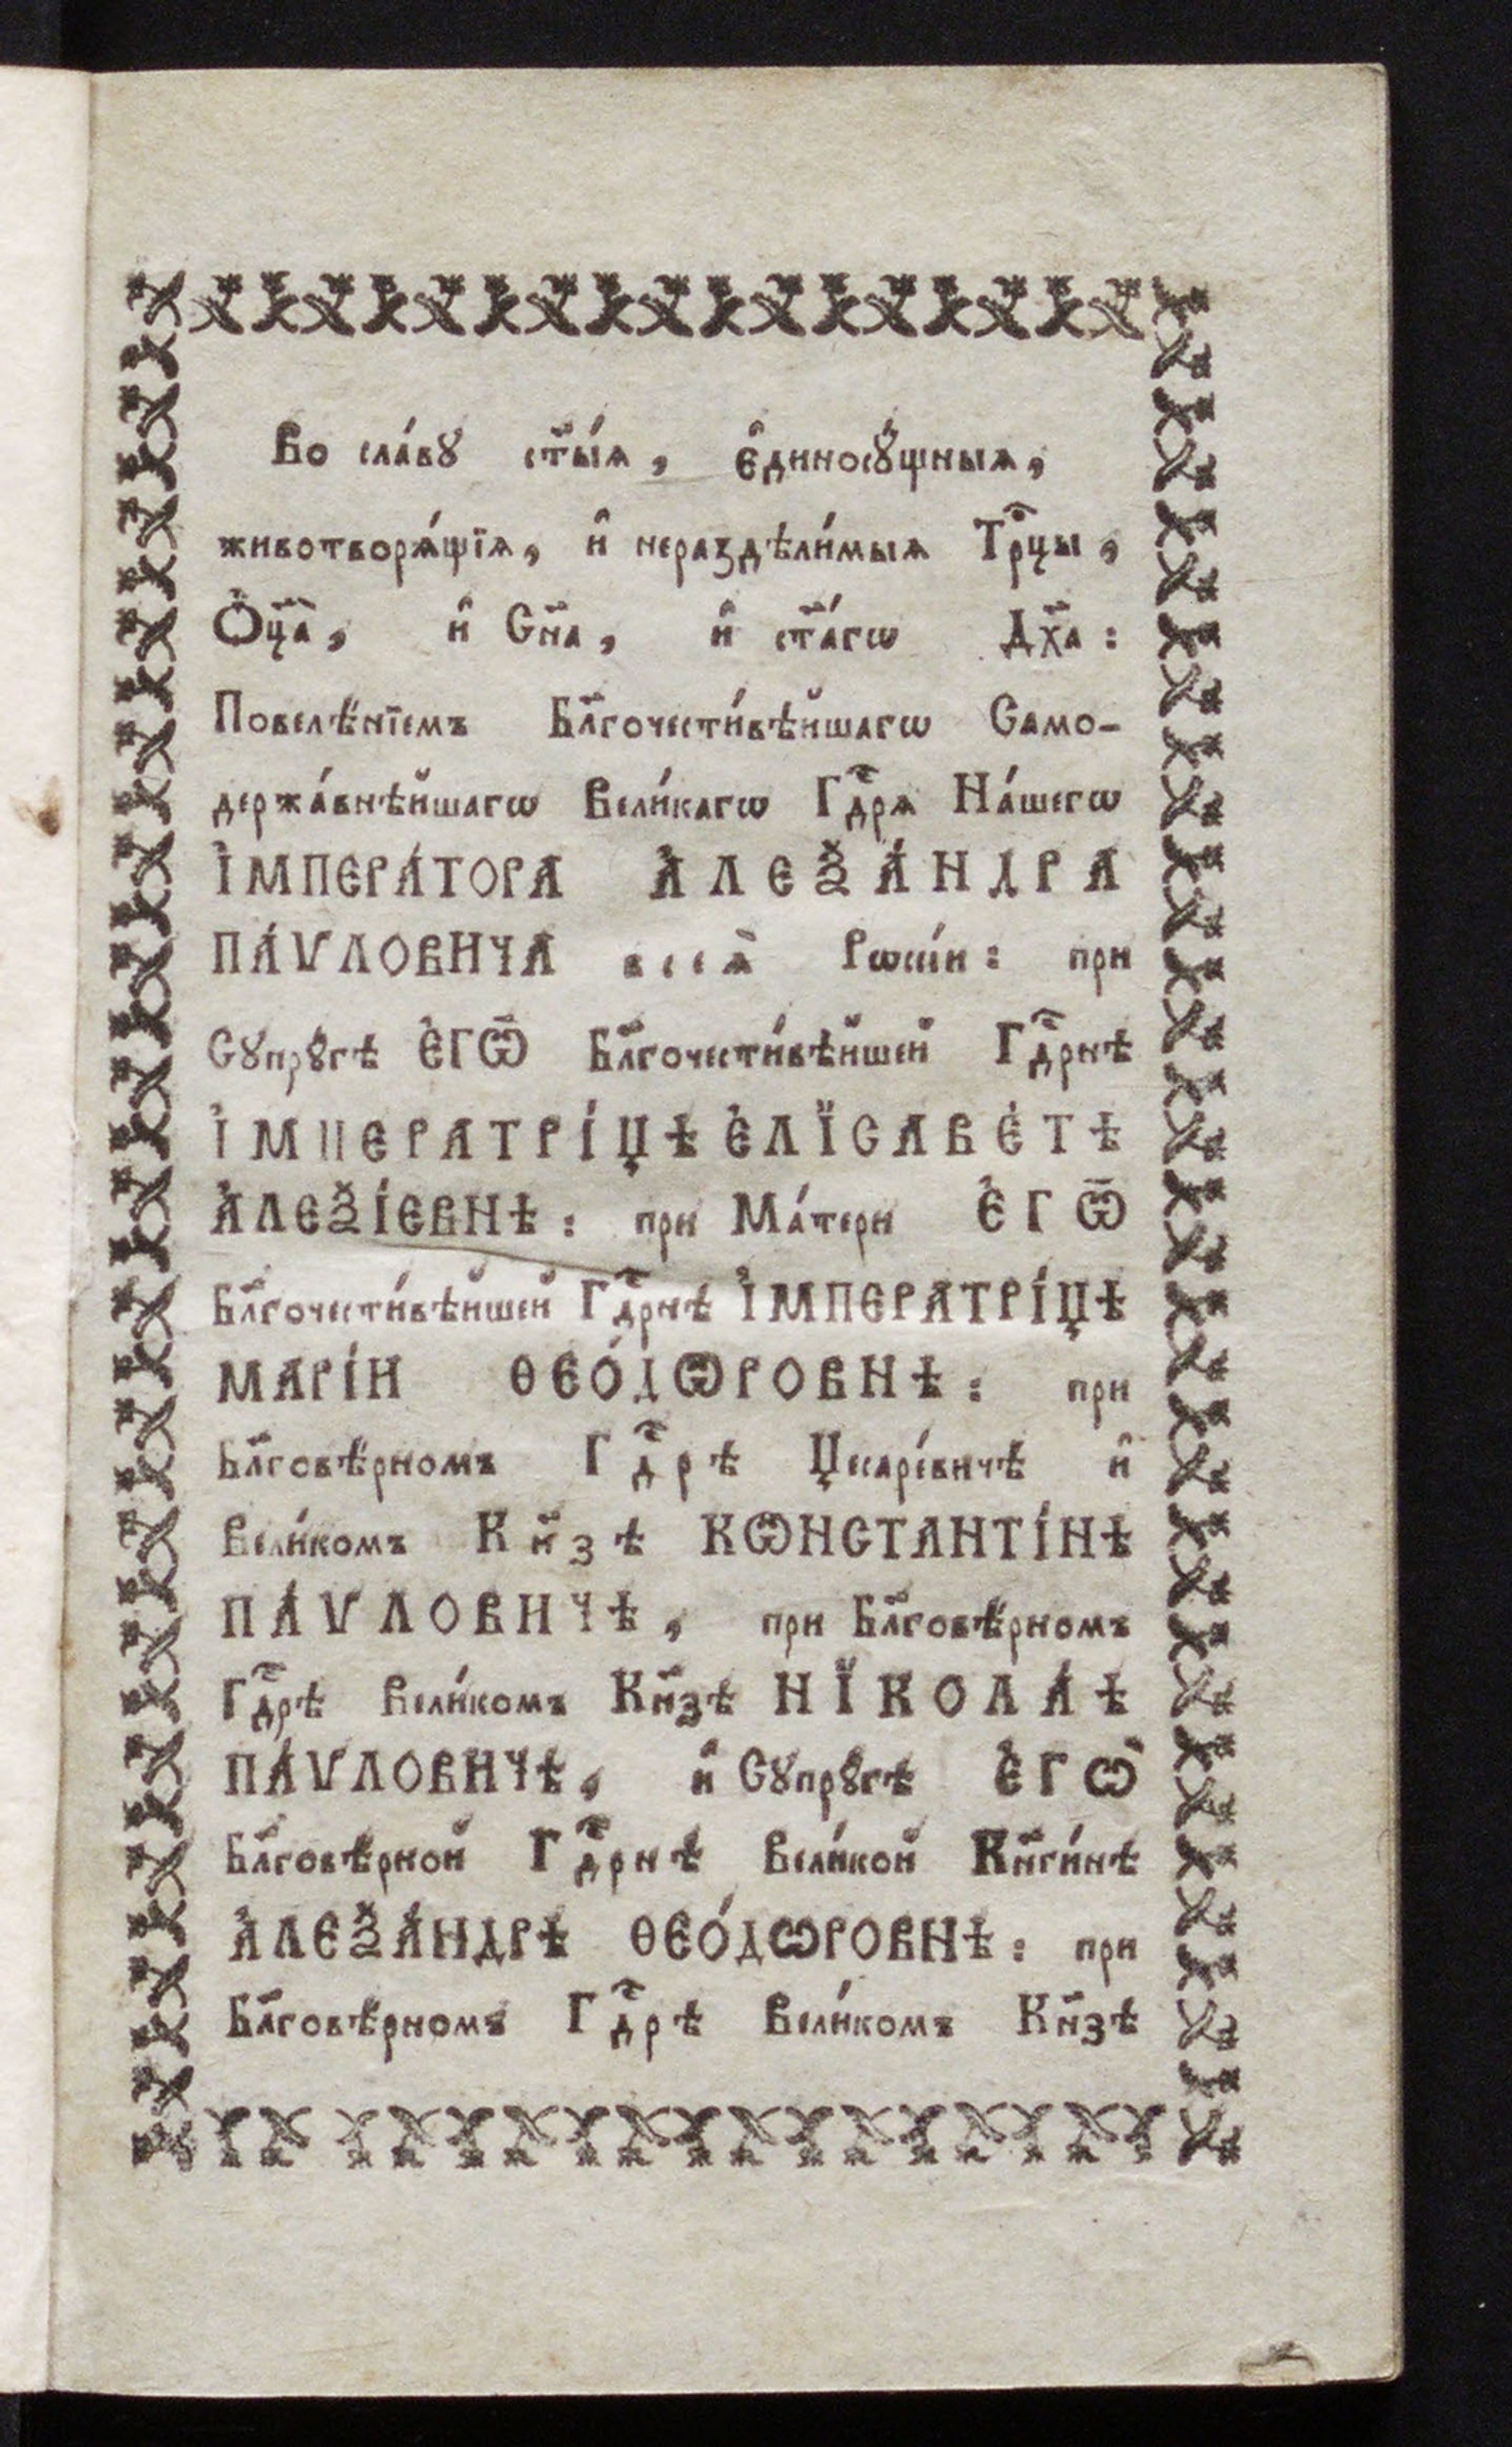 Во сла́вꙋ ст҃ы́ѧ, є҆диносꙋ́щныѧ,
животворѧ́щїѧ, и҆ нераздѣли́мыѧ Трⷪ҇цы,
Ѻ҆ц҃а̀, и҆ Сн҃а, и҆ ст҃а́гѡ Дх҃а:
Повелѣ́нїемъ Бл҃гочести́вѣйшагѡ Само-
держа́внѣйшагѡ Вели́кагѡ Гдⷭ҇рѧ На́шегѡ
І҆МПЕРА́ТОРА А҆ЛЕѮА́НДРА
ПА́ѴЛОВИЧА всеѧ̀ Рѡссі́и: при
Сꙋпрꙋ́гѣ Є҆ГѠ̀ Бл҃гочести́вѣйшей Гдⷭ҇рнѣ
І҆МПЕРАТРІ́ЦѢ Є҆ЛЇСАВЕ́ТѢ
А҆ЛЕѮІ́ЕВНѢ: при Ма́тери Є҆ГѠ̀
Бл҃гочести́вѣйшей Гдⷭ҇рнѣ І҆МПЕРАТРІ́ЦѢ
МАРІ́И ѲЕО́ДѠРОВНѢ: при
Бл҃говѣ́рномъ Гдⷭ҇рѣ Цесаре́вичѣ и҆
Вели́комъ Кн҃зѣ КѠНСТАНТІ́НѢ
ПА́ѴЛОВИЧѢ, при Бл҃говѣ́рномъ
Гдⷭ҇рѣ Вели́комъ Кн҃зѣ НЇКОЛА́Ѣ
ПА́ѴЛОВИЧѢ, и҆ Сꙋпрꙋ́гѣ Є҆ГѠ̀
Бл҃говѣ́рной Гдⷭ҇рнѣ Вели́кой Кн҃ги́нѣ
А҆ЛЕѮА́НДРѢ ѲЕО́ДѠРОВНѢ: при
Бл҃говѣ́рномъ Гдⷭ҇рѣ Вели́комъ Кн҃зѣ